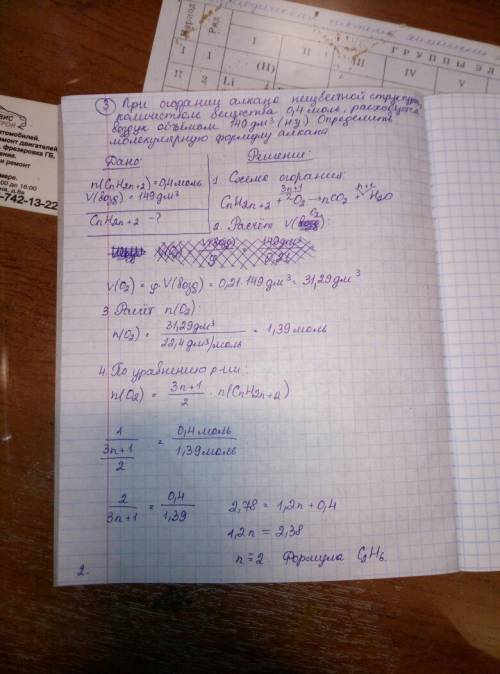 Период
Ряд
I
II
III
IV
V
ГРУППЫ ЭЛ
I
1
(H)
II
2
Li
ремонт двигателей
фрезеровка ГБ,
и ремонт
-742-13-22
③ При сгорании алкана неизвестной структуры
количеством вещества 0,4 моль, расходуется
воздух объемом 149 дм³ (н.у.) Определите
молекулярную формулу алкана
Дано:
Решение:
n(CnH2n+2) = 0,4 моль
V(возд) = 149 дм³
CnH2n+2 - ?
1. Схема сгорания:
CnH2n+2 + 3n+1/2 O2 → nCO2 + n+1 H2O
2. Расчёт V(O2):
V(O2) = φ·V(возд) = 0,21·149 дм³ = 31,29 дм³
3 Расчёт n(O2):
n(O2) = 31,29 дм³ / 22,4 дм³/моль = 1,39 моль
4. По уравнению р-ии:
n(O2) = 3n+1/2 · n(CnH2n+2)
1 / 3n+1/2 = 0,4 моль / 1,39 моль
2 / 3n+1 = 0,4 / 1,39
2,78 = 1,2n + 0,4
1,2n = 2,38
n = 2 Формула C2H6
2.